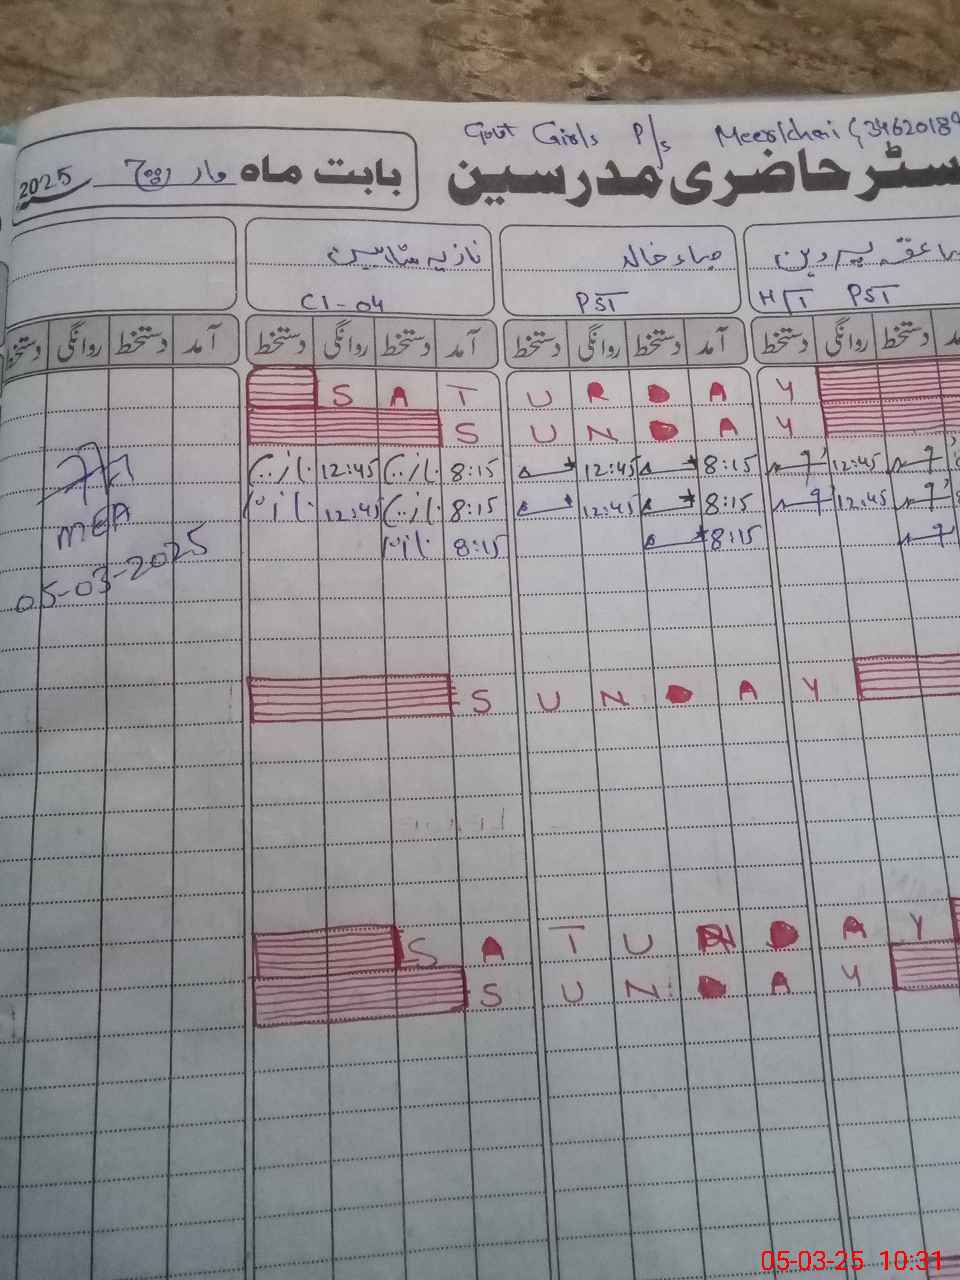 Govt Girls P/s Meerkhai (3462018
رجسٹر حاضری مدرسین
بابت ماہ مارچ 2025
صاعقہ پروین
HT PST
ضیاء خالد
PST
نازیہ شاہین
CI-04
آمد دستخط روانگی دستخط آمد دستخط روانگی دستخط آمد دستخط روانگی دستخط آمد دستخط روانگی دستخط
SATURDAY
SUNDAY
8:15 12:45 8:15 12:45 12:45
8:15 12:45 8:15 12:45 12:45
8:15 8:15
MEA
05-03-2025
SUNDAY
SATURDAY
SUNDAY
05-03-25 10:31